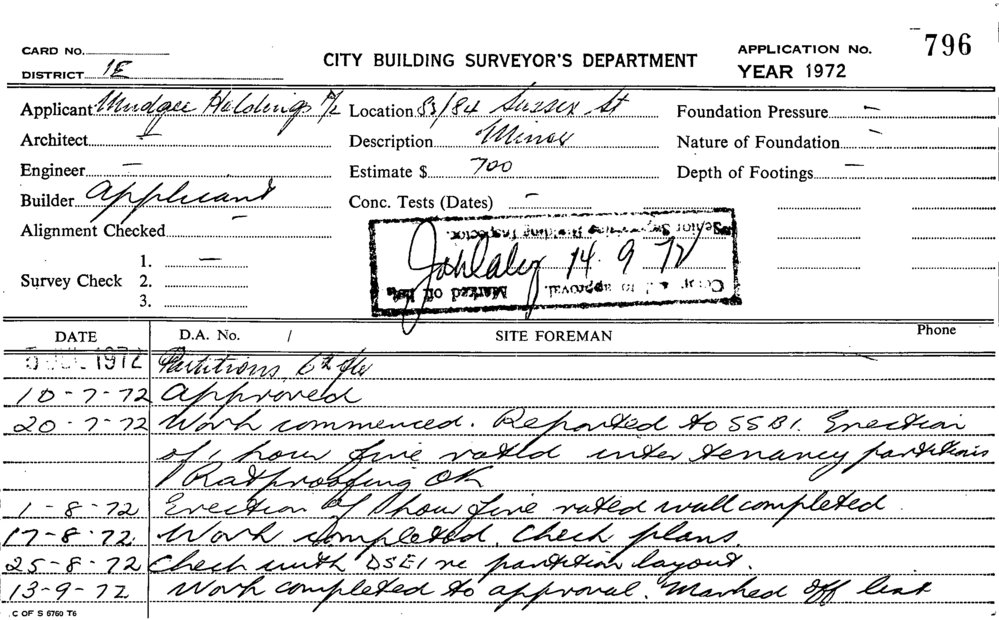 CARD No.
DISTRICT 1E
CITY BUILDING SURVEYOR'S DEPARTMENT
APPLICATION No. 796
YEAR 1972
Applicant Mudgee Holdings P/L Location 83/84 Sussex St Foundation Pressure –
Architect – Description Minor Nature of Foundation –
Engineer – Estimate $ 700 Depth of Footings –
Builder Applicant Conc. Tests (Dates) –
Alignment Checked –
Survey Check 1. –
2.
3.
Senior Supervising Building Inspector.
14.9.72
to approval.
Marked off list
DATE D.A. No. / SITE FOREMAN Phone
5 JUL 1972 Partitions 6th flr
10-7-72 Approved
20-7-72 Work commenced. Reported to SSBI. Erection
of 1 hour fire rated inter tenancy partitions
Ratproofing OK
1-8-72 Erection of 1 hour fire rated wall completed.
17-8-72 Work completed. Check plans.
25-8-72 Check with DSEI re partition layout.
13-9-72 Work completed to approval. Marked off list
C OF S 6760 T6